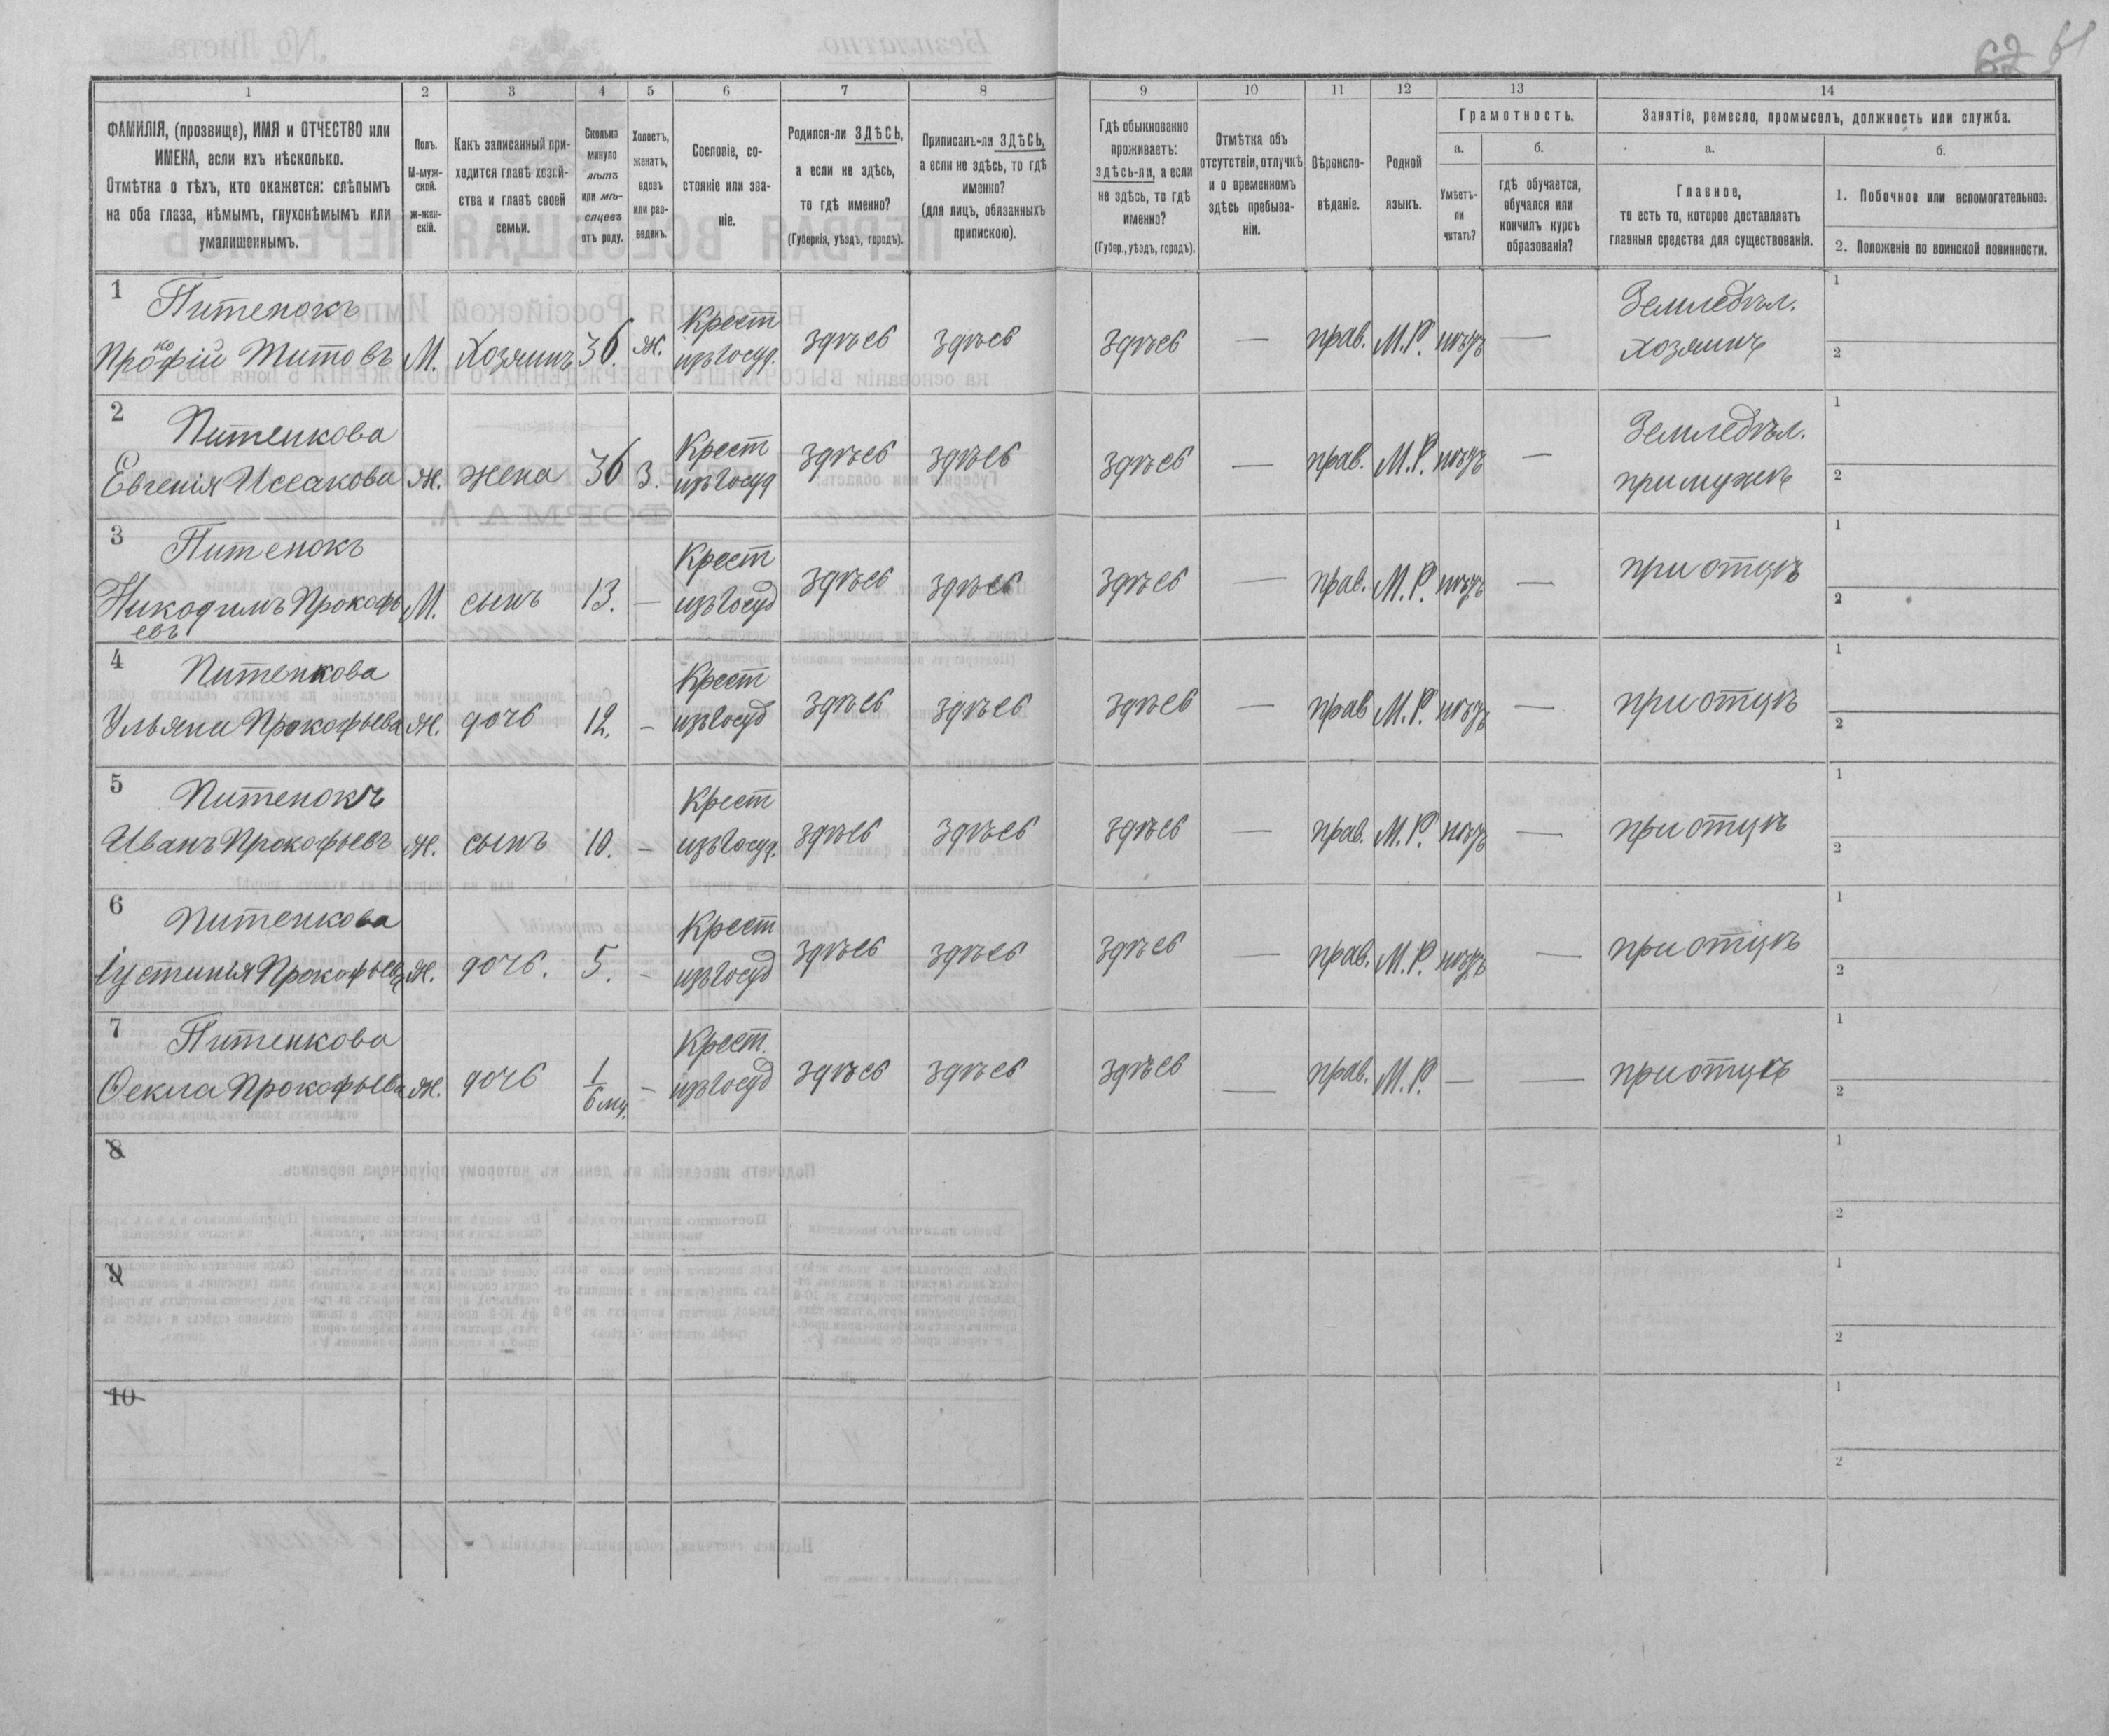 62 61
1 2 3 4 5 6 7 8 9 10 11 12 13 14
ФАМИЛІЯ, (прозвище), ИМЯ и ОТЧЕСТВО или
ИМЕНА, если ихъ нѣсколько.
Отмѣтка о тѣхъ, кто окажется: слѣпымъ
на оба глаза, нѣмымъ, глухонѣмымъ или
умалишеннымъ.
Полъ.
М-муж-
ской.
Ж-жен-
скій.
Какъ записанный при-
ходится главѣ хозяй-
ства и главѣ своей
семьи.
Сколько
минуло
лѣтъ
или мѣ-
сяцевъ
отъ роду.
Холостъ,
женатъ,
вдовъ
или раз-
веденъ.
Сословіе, со-
стояніе или зва-
ніе.
Родился-ли ЗДѢСЬ,
а если не здѣсь,
то гдѣ именно?
(Губернія, уѣздъ, городъ).
Приписанъ-ли ЗДѢСЬ,
а если не здѣсь, то гдѣ
именно?
(для лицъ, обязанныхъ
припискою).
Гдѣ обыкновенно
проживаетъ:
здѣсь-ли, а если
не здѣсь, то гдѣ
именно?
(Губер., уѣздъ, городъ).
Отмѣтка объ
отсутствіи, отлучкѣ
и о временномъ
здѣсь пребыва-
ніи.
Вѣроиспо-
вѣданіе.
Родной
языкъ.
Грамотность.
а.
Умѣетъ-
ли
читать?
б.
гдѣ обучается,
обучался или
кончилъ курсъ
образованія?
Занятіе, ремесло, промыселъ, должность или служба.
а.
Главное,
то есть то, которое доставляетъ
главныя средства для существованія.
б.
1. Побочное или вспомогательное.
2. Положеніе по воинской повинности.
1 Питенокъ Крест Земледѣл. 1
Прокофій Титовъ М. Хозяинъ 36. Ж. изъ Госуд. здѣсь здѣсь здѣсь — прав. М.Р. нѣтъ — хозяинъ 2
2 Питенкова Крест Земледѣл. 1
Евгенія Иссакова Ж. жена 36 З. изъ Госуд здѣсь здѣсь здѣсь — прав. М.Р. нѣтъ — при мужѣ 2
3 Питенокъ Крест 1
Никодимъ Прокофь М. сынъ 13. — изъ Госуд здѣсь здѣсь здѣсь — прав. М.Р. нѣтъ — при отцѣ 2
евъ
4 Питенкова Крест 1
Ульяна Прокофьева Ж. дочь 12. — изъ Госуд здѣсь здѣсь здѣсь — прав М.Р. нѣтъ — при отцѣ 2
5 Питенокъ Крест 1
Иванъ Прокофьевъ М. сынъ 10. — изъ Госуд. здѣсь здѣсь здѣсь — прав. М.Р. нѣтъ — при отцѣ 2
6 Питенкова Крест 1
Іустинія Прокофьева Ж. дочь. 5. — изъ Госуд здѣсь здѣсь здѣсь — прав. М.Р. нѣтъ — при отцѣ 2
7 Питенкова Крест. 1
Ѳекла Прокофьева Ж. дочь 1/6 мц. — изъ Госуд здѣсь здѣсь здѣсь — прав. М.Р. — — при отцѣ 2
8 1
2
9 1
2
10 1
2